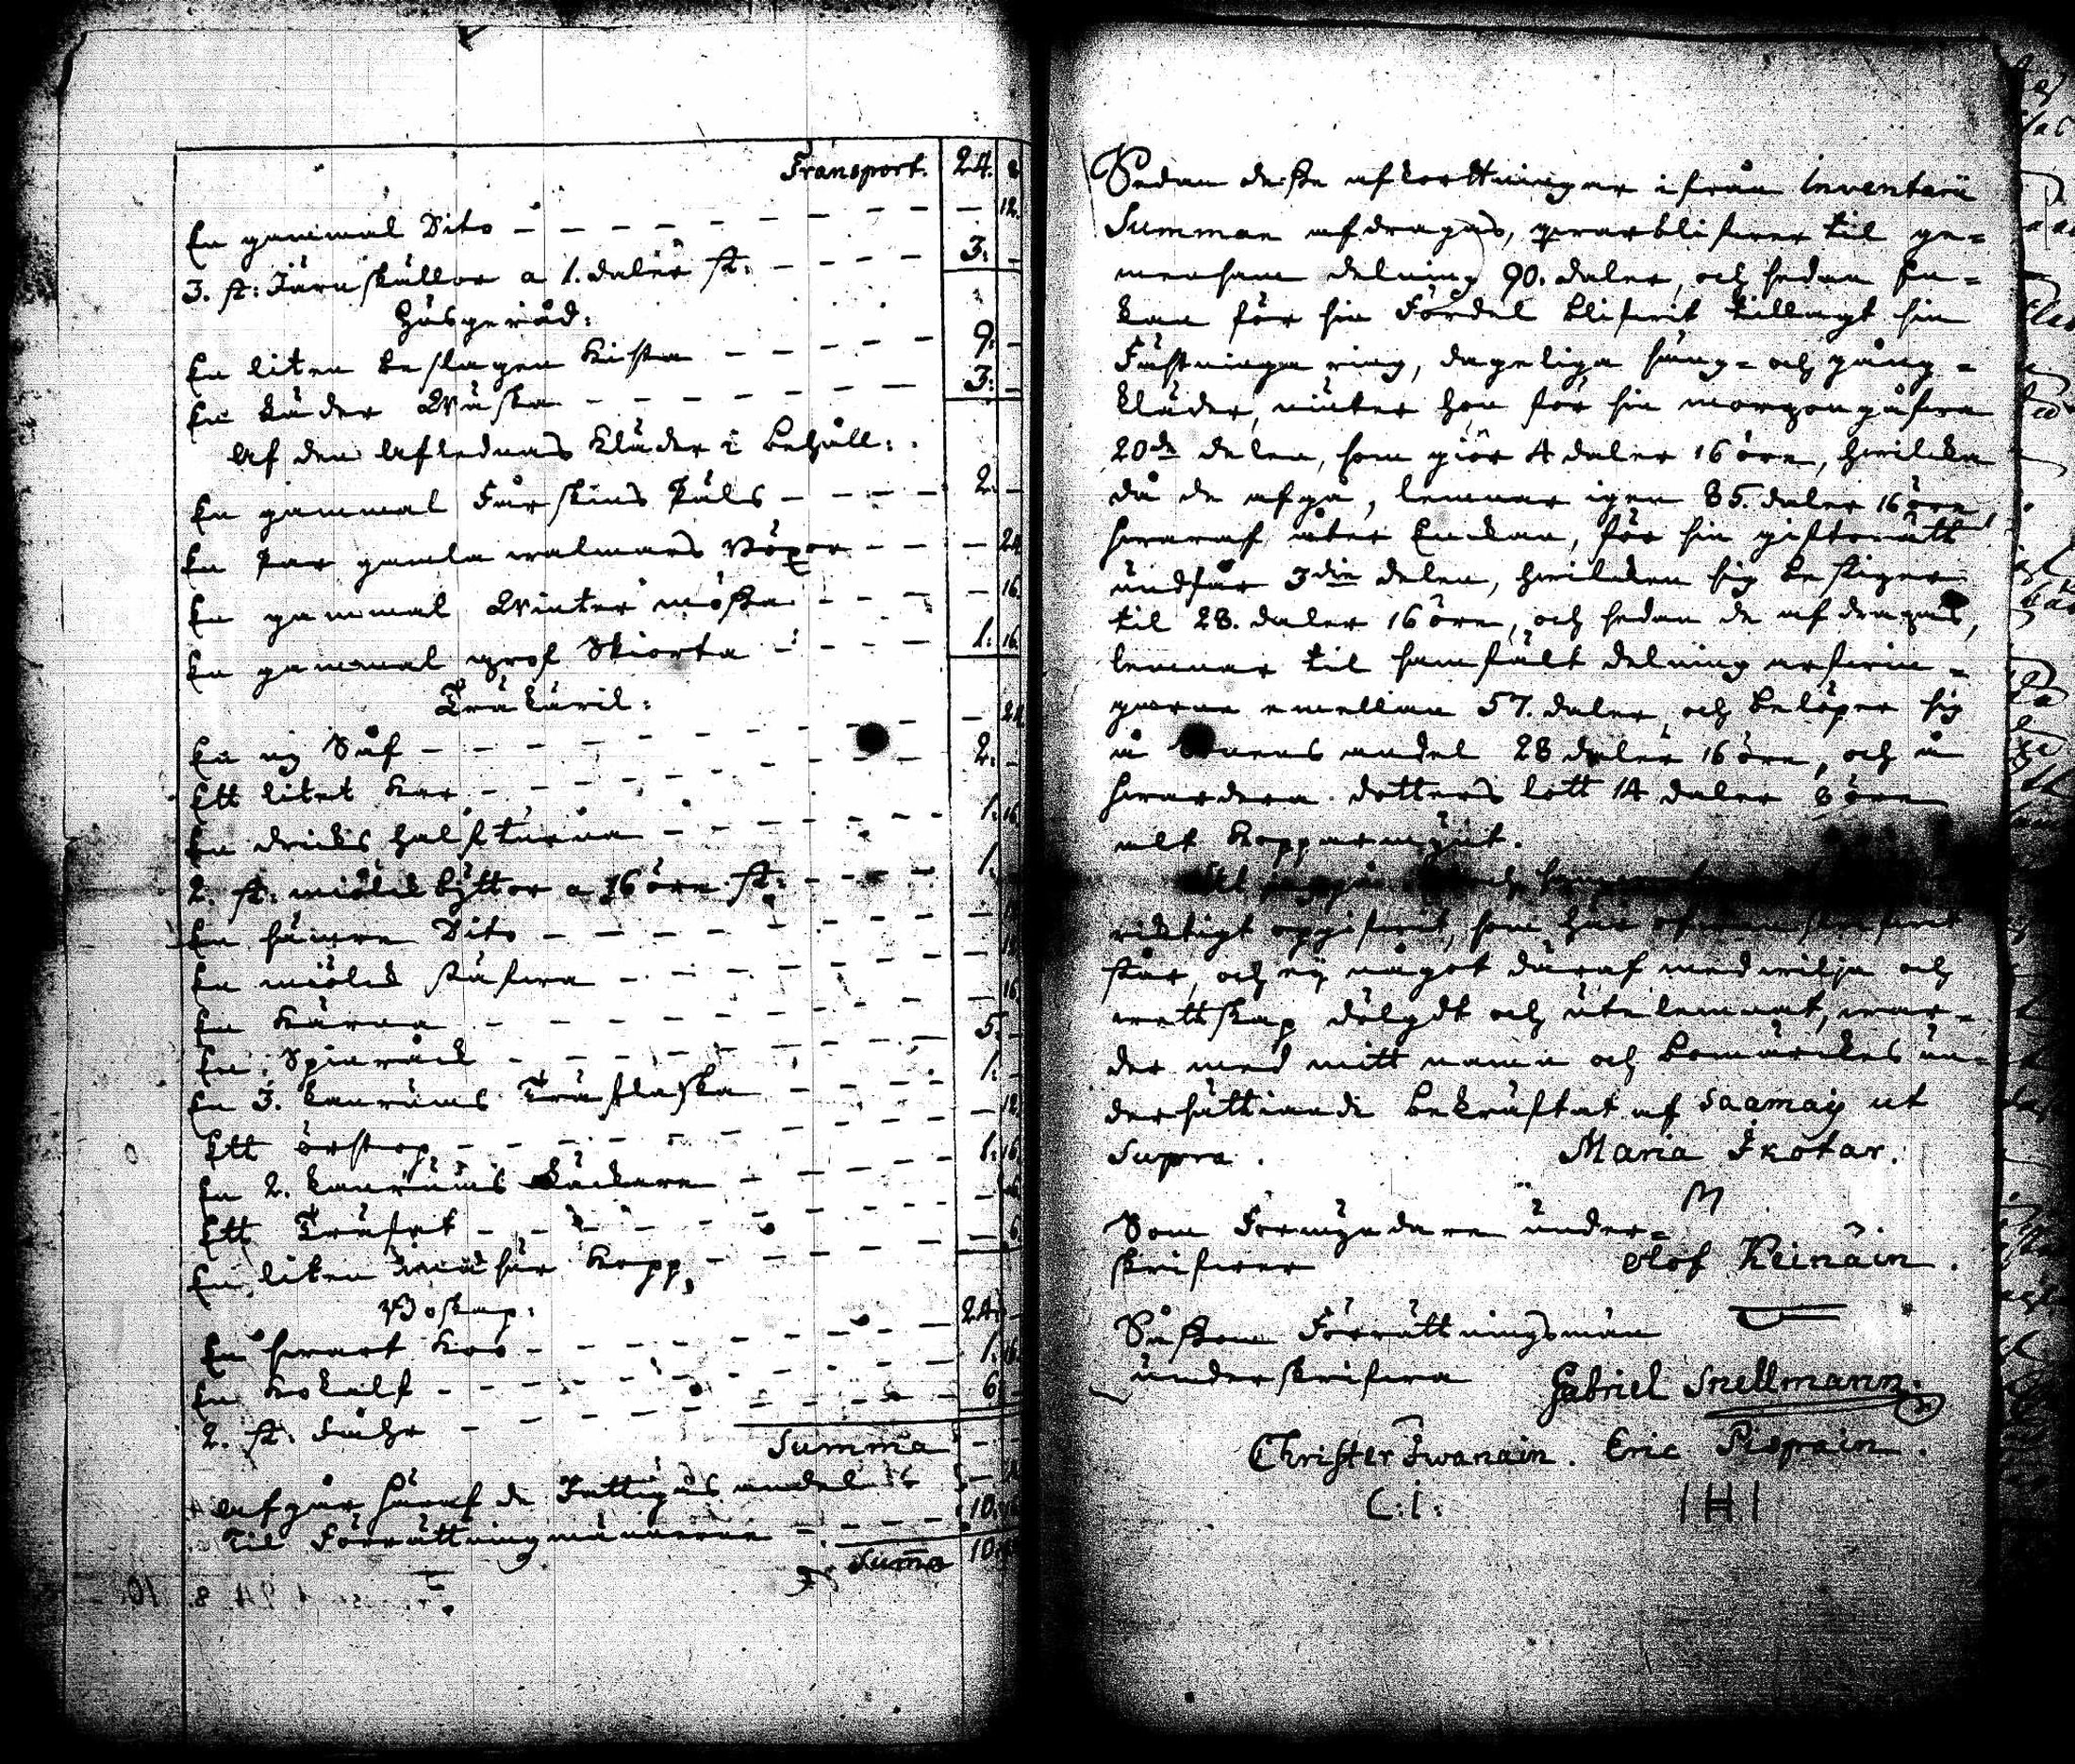 Transport. 24. 8
En gammal Dito - - - - - - - - 12.
3. st: Järnskällor a 1. daler st: - - - - 3: -
Husgeråd:
En liten beslagen Kista - - - - 9: -
En Läder Wäska - - - - - - 3: -
Af den Aflednas Kläder i behåll:
En gammal Fårskins Päls - - - - 2. -
En Par gamla walmars Böxor - - - 24
En gammal Winter mössa - - - - 16
En gammal grof Skiorta - - - - 1: 16
Träkäril:
En ny Såf - - - - - - - - 24
Ett litet Kar - - - - - - - 2. -
En dricks halftunna - - - - - - 1. 16
2. st: miölck byttor a 16 öre st: - - - - 1. -
En sämre Dito - - - - - - - -
En miölck stäfwa - - - - - - -
En Kärna - - - - - - - 16
En Spinråck - - - - - - - 5. -
En 3. kanrums Träflaska - - - - 1: -
Ett örstrop - - - - - - - - 12
En 2. kanrums - - - - 1: 16
Ett Träfat - - - - - - -
En liten Kopp, - - - - - 6
Boskap:
En swart Ko - - - - - - - 24: -
En Kokalf - - - - - - - 1. 16
2. st. Fåhr - - - - - - - 6 -
Summa - -
Afgår häraf de Fattigas andel
Til Förrättningsmännerne - - - - 10: 16
Suma 10
Sedan desse afkorttningar ifrån Inventarii
Summan afdragas, qwarblifwer til ge=
mensam delning 90. daler, och sedan En=
kan för sin Fördel blifwit tillagt sin
Fästninga ring, dageliga säng= och gång=
kläder, niuter hon för sin morgongåfwa
20de delen, som giör 4 daler 16 öre, hwilcka
då de afgå, lemnar igen 85. daler 16 öre,
hwaraf åter Enckan, för sin giftorätt
undfår 3die delen, hwilcken sig bestiger
til 28. daler 16 öre, och sedan de afdragas,
lemnar til samfält delning arfwin=
garna emellan 57. daler, och belöper sig
å Sonens andel 28 daler 16 öre, och å
hwardera dotters lott 14 daler 8 öre
alt Kopparmynt.
riktigt oppgifwit, som här ofwanskrifwit
står, och ej något däraf med wilja och
wettskap dölgdt och utelemnat, war=
der med mitt namn och bomärckes un=
dersättiande bekräftat af Saamaj ut
Supra. Maria Ikotar.
M
Som Förmyndare under=
skrifwer Olof Keinäin.
Såsom Förrättningsmän
underskrifwa Gabriel Snellmann.
Christer Iwanain. Eric Pispain.
C: I: IHI